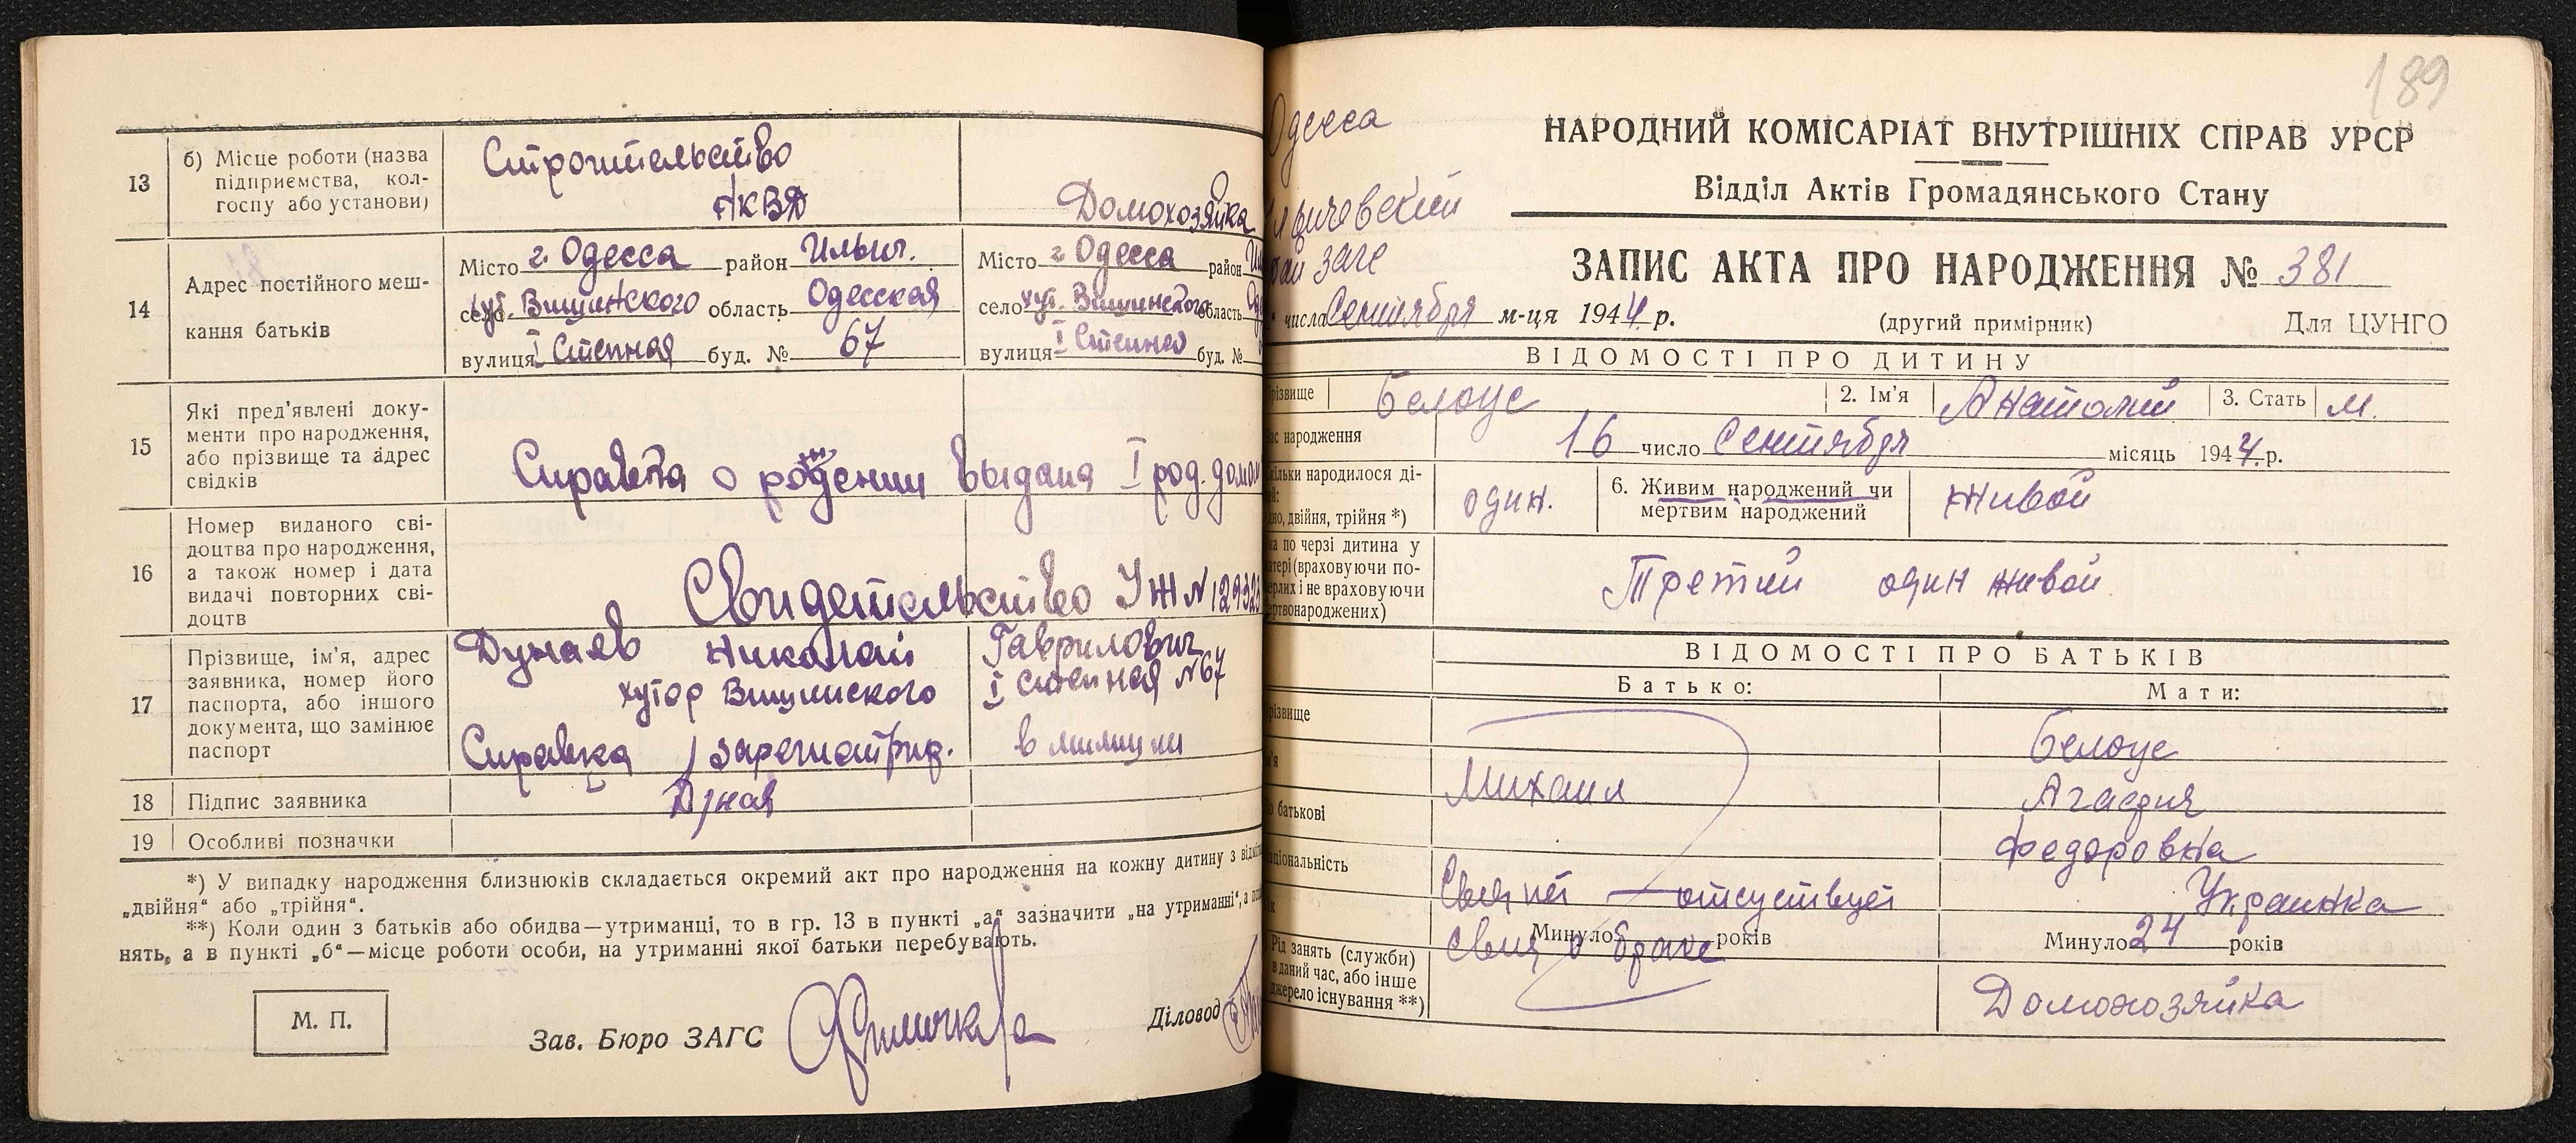 13
б) Місце роботи (назва
підприємства, кол-
госпу або установи)
Строительство
НКВД
Домохозяйка
14
Адрес постійного меш-
кання батьків
Місто г. Одесса район Ильич.
село хут. Вишинского область Одесская
вулиця І Степная буд. № 67
Місто г Одесса район
село хут. Вишинского область
вулиця І Степная буд. №
15
Які пред'явлені доку-
менти про народження,
або прізвище та адрес
свідків
Справка о рождении выдана І род. домом
16
Номер виданого сві-
доцтва про народження,
а також номер і дата
видачі повторних сві-
доцтв
Свидетельство УЖ №
17
Прізвище, ім'я, адрес
заявника, номер його
паспорта, або іншого
документа, що замінює
паспорт
Дунаев Николай Гаврилович
хутор Вишинского І Степная №67
Справка зарегистрир. в милиции
18 Підпис заявника
Дунаев
19 Особливі позначки
*) У випадку народження близнюків складається окремий акт про народження на кожну дитину з
„двійня“ або „трійня“.
**) Коли один з батьків або обидва—утриманці, то в гр. 13 в пункті „а“ зазначити „на утриманні“, а
нять, а в пункті „б“—місце роботи особи, на утриманні якої батьки перебувають.
М. П.
Зав. Бюро ЗАГС
Діловод
189
Одесса
НАРОДНИЙ КОМІСАРІАТ ВНУТРІШНІХ СПРАВ УРСР
Відділ Актів Громадянського Стану
загс
ЗАПИС АКТА ПРО НАРОДЖЕННЯ № 381
числа Сентября м-ця 1944 р.
(другий примірник)
Для ЦУНГО
ВІДОМОСТІ ПРО ДИТИНУ
різвище Белоус 2. Ім'я Анатолий 3. Стать м.
ас народження 16 число Сентября місяць 1944 р.
кільки народилося ді-
но, двійня, трійня *)
один.
6. Живим народжений чи
мертвим народжений
живой
ка по черзі дитина у
атері (враховуючи по-
ерлих і не враховуючи
ертвонароджених)
Третий один живой
ВІДОМОСТІ ПРО БАТЬКІВ
Батько:
Мати:
різвище
Белоус
м'я
Михаил
Агафия
о батькові
Федоровна
ціональність
отсуствует
Украинка
Минуло років
о браке
Минуло 24 років
Рід занять (служби)
в даний час, або інше
джерело існування **)
Домохозяйка